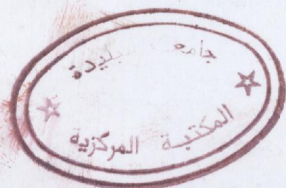 جامعة بليدة
المكتبة المركزية